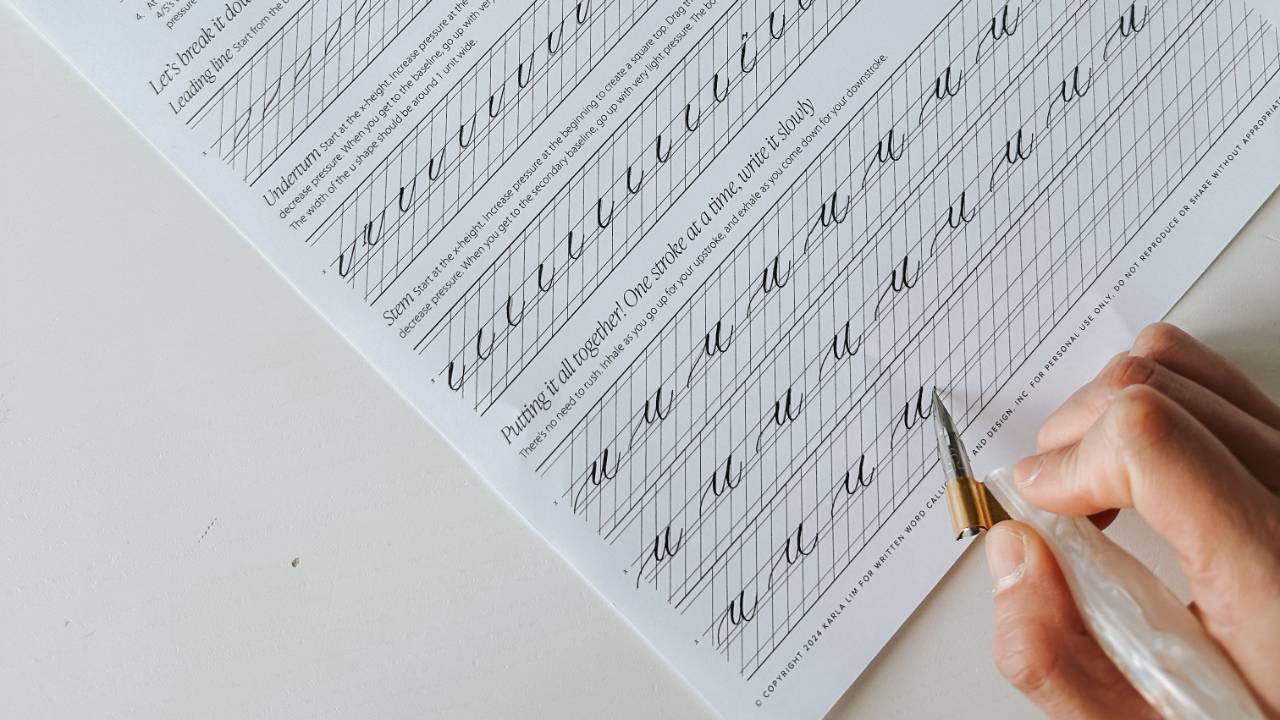 4.
4/5's
pressure
Let's break it dow
Leading line Start from the
Underturn Start at the x-height. Increase pressure at the
decrease pressure. When you get to the baseline, go up with very
The width of the u shape should be around 1 unit wide.
x
ı ı ı ı ı ı ı ı
Stem Start at the x-height. Increase pressure at the beginning to create a square top. Drag th
decrease pressure. When you get to the secondary baseline, go up with very light pressure. The bo
x
ı ı ı ı ı ı ı ı ı ı ı ı
Putting it all together! One stroke at a time, write it slowly
There's no need to rush. Inhale as you go up for your upstroke, and exhale as you come down for your downstroke.
x
u u u u u u u u
x
u u u u u u u u
x
u u u u
© COPYRIGHT 2024 KARLA LIM FOR WRITTEN WORD CALLI AND DESIGN, INC. FOR PERSONAL USE ONLY. DO NOT REPRODUCE OR SHARE WITHOUT APPROPRIA